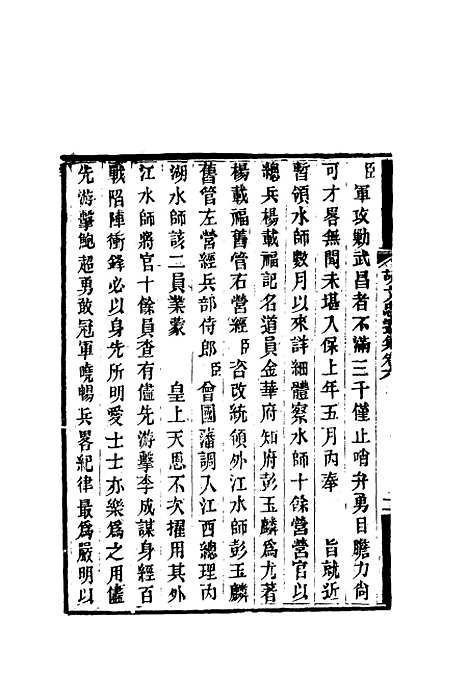 臣軍攻勦武昌者不滿三千僅止哨弁勇目膽力尙
可才畧無聞未堪入保上年五月內奉　旨就近
暫領水師數月以來詳細體察水師十餘營營官以
總兵楊載福記名道員金華府知府彭玉麟爲尤著
楊載福舊管右營經臣咨改統領外江水師彭玉麟
舊管左營經兵部侍郎臣曾國藩調入江西總理內
湖水師該二員業蒙　皇上天恩不次擢用其外
江水師將官十餘員查有儘先游擊李成謀身經百
戰陷陣衝鋒必以身先所明愛士士亦樂爲之用儘
先游擊鮑超勇敢冠軍曉暢兵畧紀律最爲嚴明以